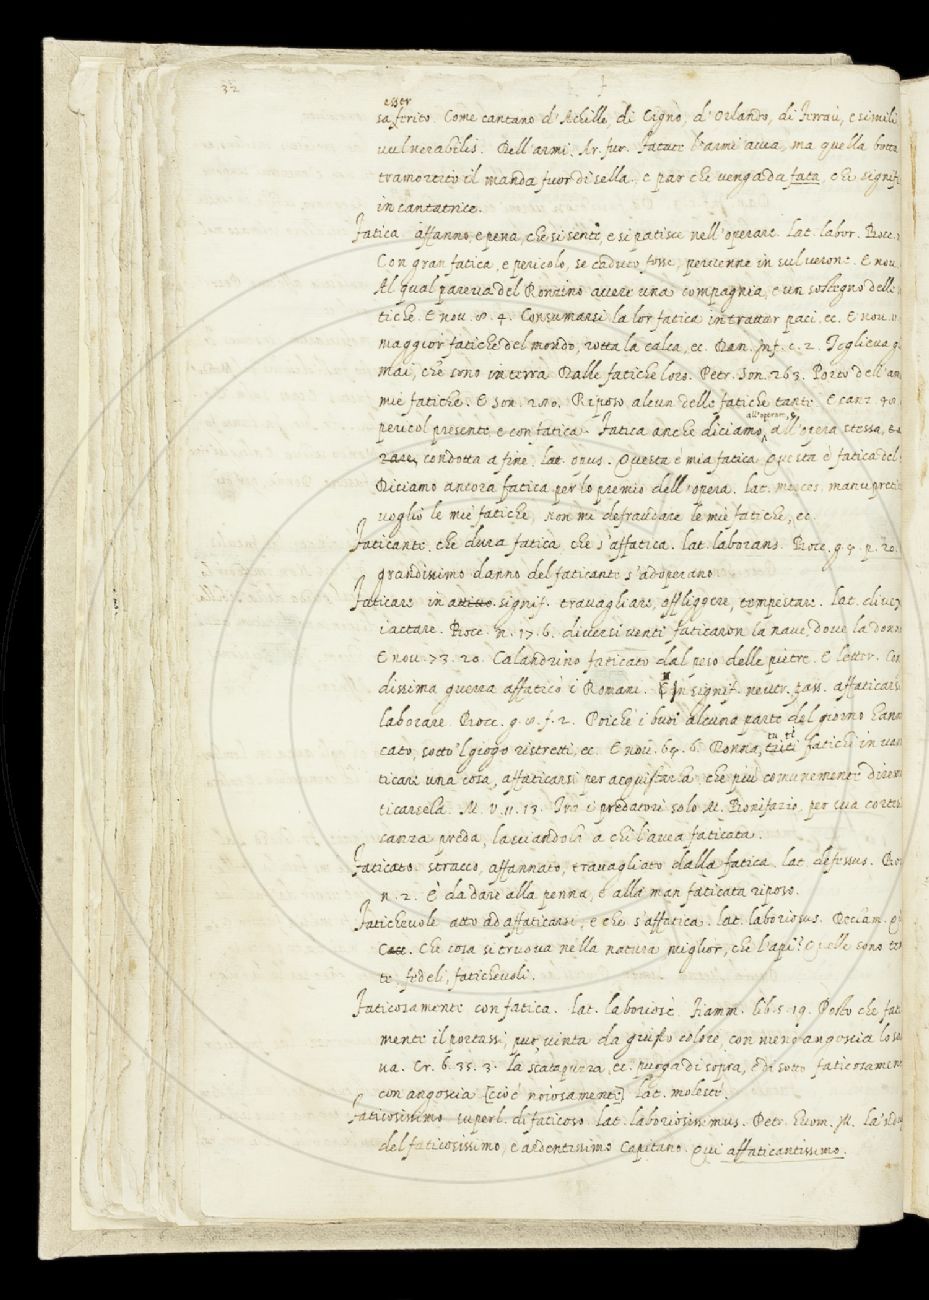 32
esser
sa ferito. Come cantano d'Achille, di Cigno, d'Orlando, di Ferraù, e simili
vulnerabilis. Dell'armi. Ar. fur. Fatate l'armi avea, ma quella botta
tramortito il manda fuor di sella. e par che venga da fata, che signif
incantatrice.
Fatica affanno, e pena, che si sente, e si patisce nell'operare. Lat. labor. Bocc.
Con gran fatica, e pericolo, se caduto fosse, pervenne in sul verone. E nov.
Al qual pareva del Ronzino avere una compagnia, e un sostegno delle
tiche. E nov. 8. 4. Consumansi la lor fatica in trattar paci. ec. E nov.
maggior fatiche del mondo, rotta la calca, ec. Dan. Inf. c. 2. Toglieva
mai, che sono in terra Dalle fatiche loro. Petr. Son. 263. Porto dell'
mie fatiche. E son. 280. Riposo alcun delle fatiche tante. E canz. 48.
pericol presente e con fatica. Fatica anche diciamo, all'operare, e all'opera stessa,
condotta a fine. lat. opus. Questa è mia fatica Questa è fatica del
Diciamo ancora fatica per lo premio dell'opera. lat. merces. manupreti
voglio le mie fatiche, non mi defraudare le mie fatiche, ec.
Faticante. che dura fatica, che s'affatica. lat. laborans. Bocc. g. 5. p. 20.
grandissimo danno del faticante s'adoperano
Faticare in attivo signif. travagliare, affliggere, tempestare. Lat. di vex
iactare. Bocc. n. 17. 6. diversi venti faticaron la nave, dove la donn
E nov. 73. 20. Calandrino faticato dal peso delle pietre. E letter. Con
dissima guerra affaticò i Romani. In signif. neutr. pass. affaticarsi
laborare. Bocc. g. 8. f. 2. Poichè i buoi alcuna parte del giorno hann
cato, sotto 'l giogo ristretti, ec. E nov. 69. 6. Donna, tu ti fatichi in van
ticare una cosa, affaticarsi per acquistarla. che più comunemente direm
ticarsela. M. V. 11. 13. Tra i predatori solo M. Bonifazio, per sua cortes
canza preda, lasciandola a chi l'avea faticata.
Faticato. stracco, affannato, travagliato dalla fatica. lat. defessus. Bo
n. 2. È da dare alla penna, e alla man faticata riposo.
Fatichevole atto ad affaticarsi, e che s'affatica. lat. laboriosus. Declam. Q
Che cosa si truova nella natura miglior, che l'api? Quelle sono
te, fedeli, fatichevoli.
Faticosamente con fatica. Lat. laboriosè. Fiamm. lib. 5. 19. Posto che fat
mente il portassi, pur vinta da giusto colore, con meno angoscia lo so
va. Cr. 6. 35. 3. La scatapuzza, ec. purga di sopra, e di sotto faticosamen
con angoscia [cioè noiosamente] Lat. molestè.
Faticosissimo superl. di faticoso. lat. laboriosissimus. Petr. Huom. Ill. La
del faticosissimo, e ardentissimo Capitano. Qui affaticantissimo.